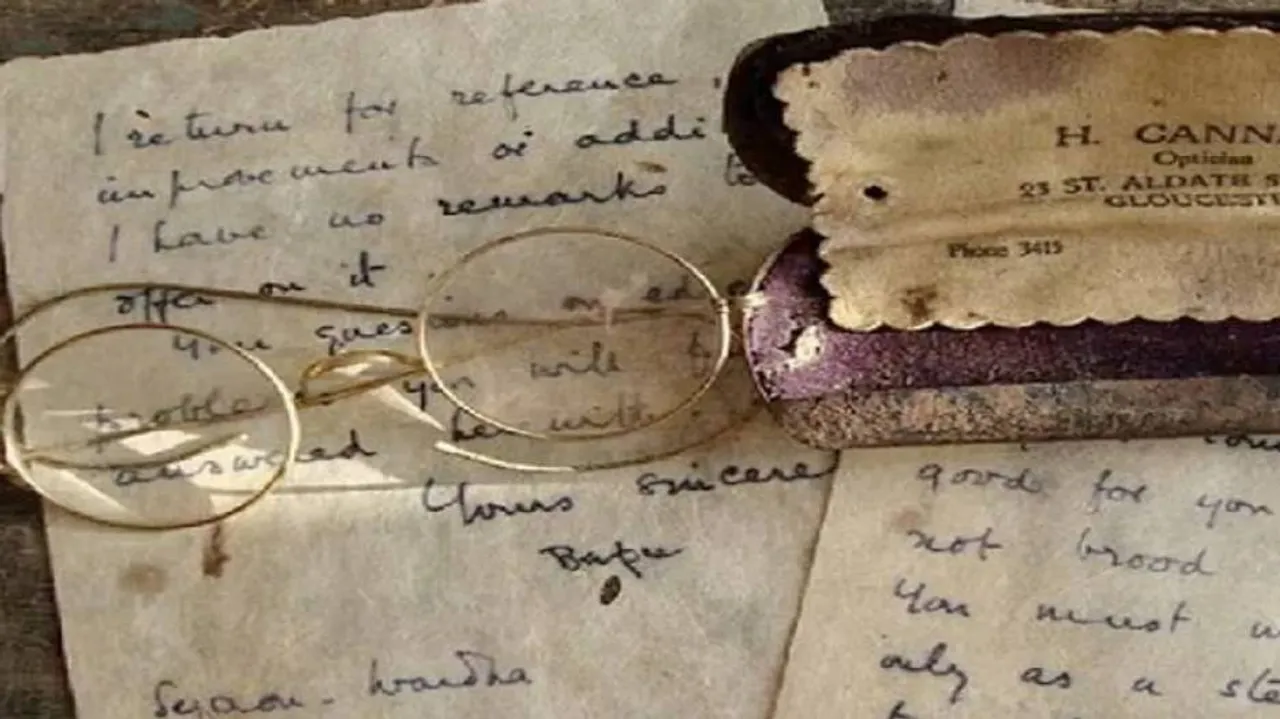 I return for reference
improvements or addi
I have no remarks to
offer on it
Your ques on edu
proble you will b
answered herewith.
Yours sincere
Bapu
Segaon - Wardha
H. CANN
Optician
23 ST. ALDATE S
GLOUCESTE
Phone 3415
good for you
not brood
You must
only as a ste